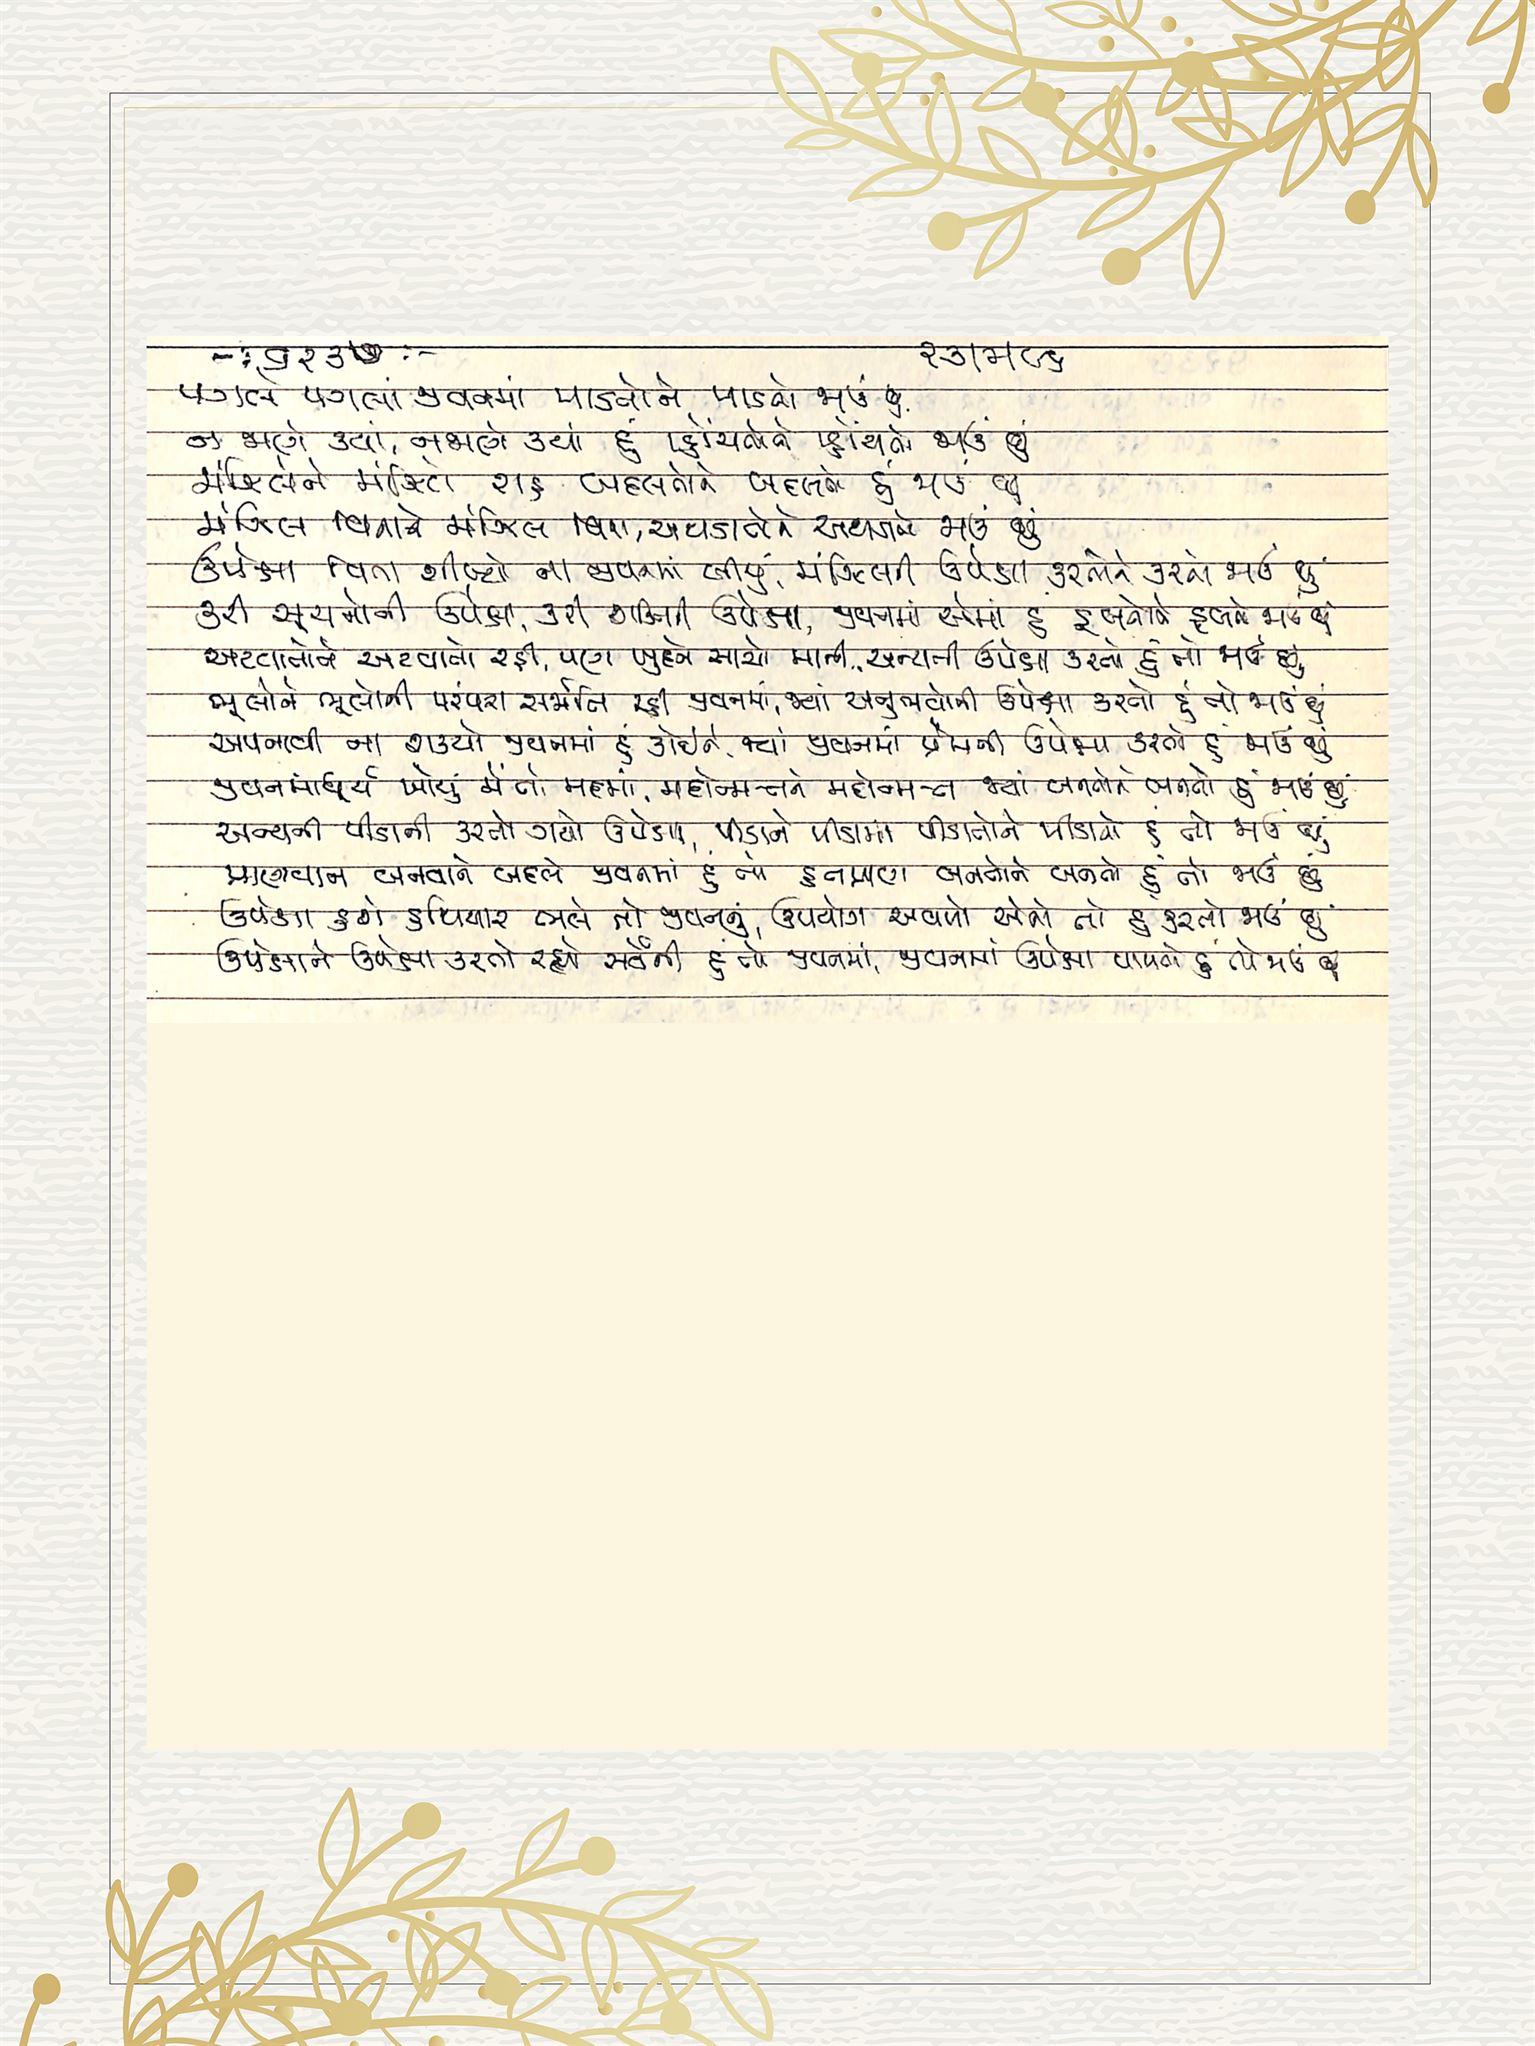 પગલે પગલાં જીવનમાં પાડતોને પાડતો જાઉં છું
ન જાણે ક્યાં, ન જાણે ક્યાં હું પ્હોંચતોને પ્હોંચતો જાઉં છું
મંઝિલેને મંઝિલે રાહ બદલતોને બદલતો હું જાઉં છું
મંઝિલ વિનાને મંઝિલ વિના, અથડાતોને અથડાતો જાઉં છું
ઉપેક્ષા વિના શીખ્યો ના જીવનમાં બીજું, મંઝિલની ઉપેક્ષા કરતોને કરતો જાઉં છું
કરી સૂચનોની ઉપેક્ષા, કરી શક્તિની ઉપેક્ષા, જીવનમાં એમાં હું ડૂબતોને ડૂબતો જાઉં છું
અટવાતોને અટવાતો રહી, પણ ખુદને સાચો માની, અન્યની ઉપેક્ષા કરતો હું તો જાઉં છું
ભૂલોને ભૂલોની પરંપરા સર્જાતિ રહી જીવનમાં, જ્યાં અનુભવોની ઉપેક્ષા કરતો હું તો જાઉં છું
અપનાવી ના શક્યો જીવનમાં હું કોઈને, જ્યાં જીવનમાં પ્રેમની ઉપેક્ષા કરતો હું જાઉં છું
જીવનમાધુર્ય ખોયું મેં તો મદમાં, મદોન્મત્તને મદોન્મત્ત જ્યાં બનતોને બનતો હું જાઉં છું
અન્યની પીડાની કરતો ગયો ઉપેક્ષા, પીડાને પીડામાં પીડાતોને પીડાતો હું તો જાઉં છું
પ્રાણવાન બનવાને બદલે જીવનમાં હું તો હતપ્રાણ બનતોને બનતો હું તો જાઉં છું
ઉપેક્ષા હશે હથિયાર ભલે તો જીવનનું, ઉપયોગ અવળો એનો તો હું કરતો જાઉં છું
ઉપેક્ષાને ઉપેક્ષા કરતો રહ્યો સર્વેની હું તો જીવનમાં, જીવનમાં ઉપેક્ષા પામતો હું તો જાઉં છું